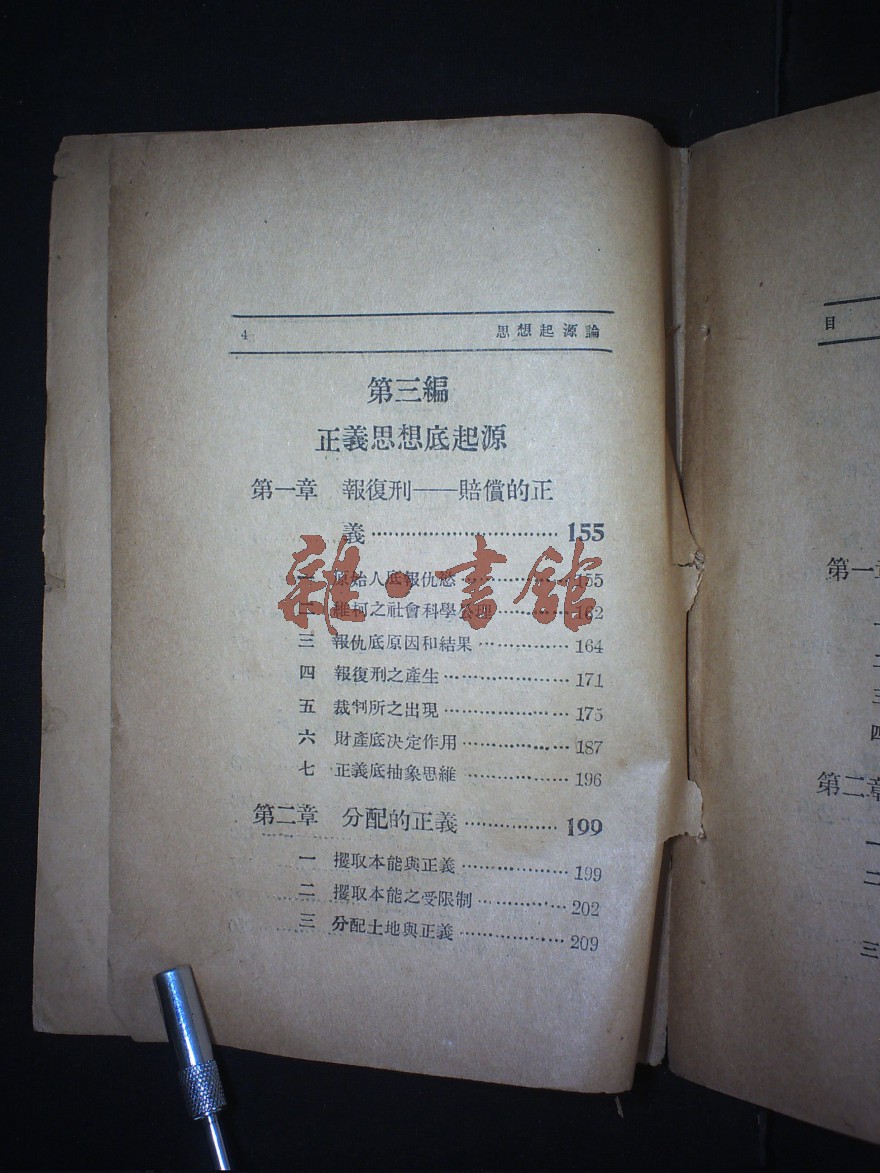 4 思想起源論
第三編
正義思想底起源
第一章 報復刑——賠償的正
義……………………………155
一 原始人底報仇慾………………155
二 維柯之社會科學公理…………162
三 報仇底原因和結果……………164
四 報復刑之產生…………………171
五 裁判所之出現…………………175
六 財產底決定作用………………187
七 正義底抽象思維………………196
第二章 分配的正義……………199
一 攫取本能與正義………………199
二 攫取本能之受限制……………202
三 分配土地與正義………………209
雜·書館
目
第一章
一
二
三
四
第二章
一
二
三